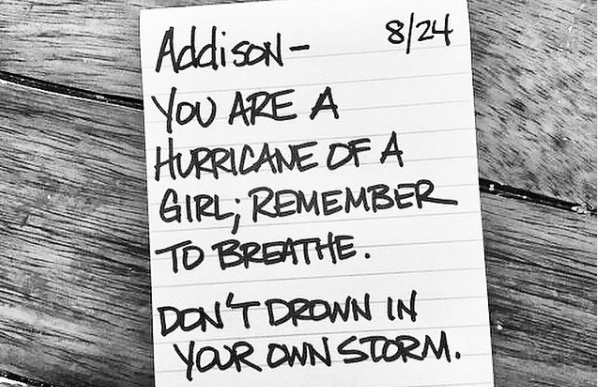 Addison- 8/24
YOU ARE A
HURRICANE OF A
GIRL; REMEMBER
TO BREATHE.
DON'T DROWN IN
YOUR OWN STORM.